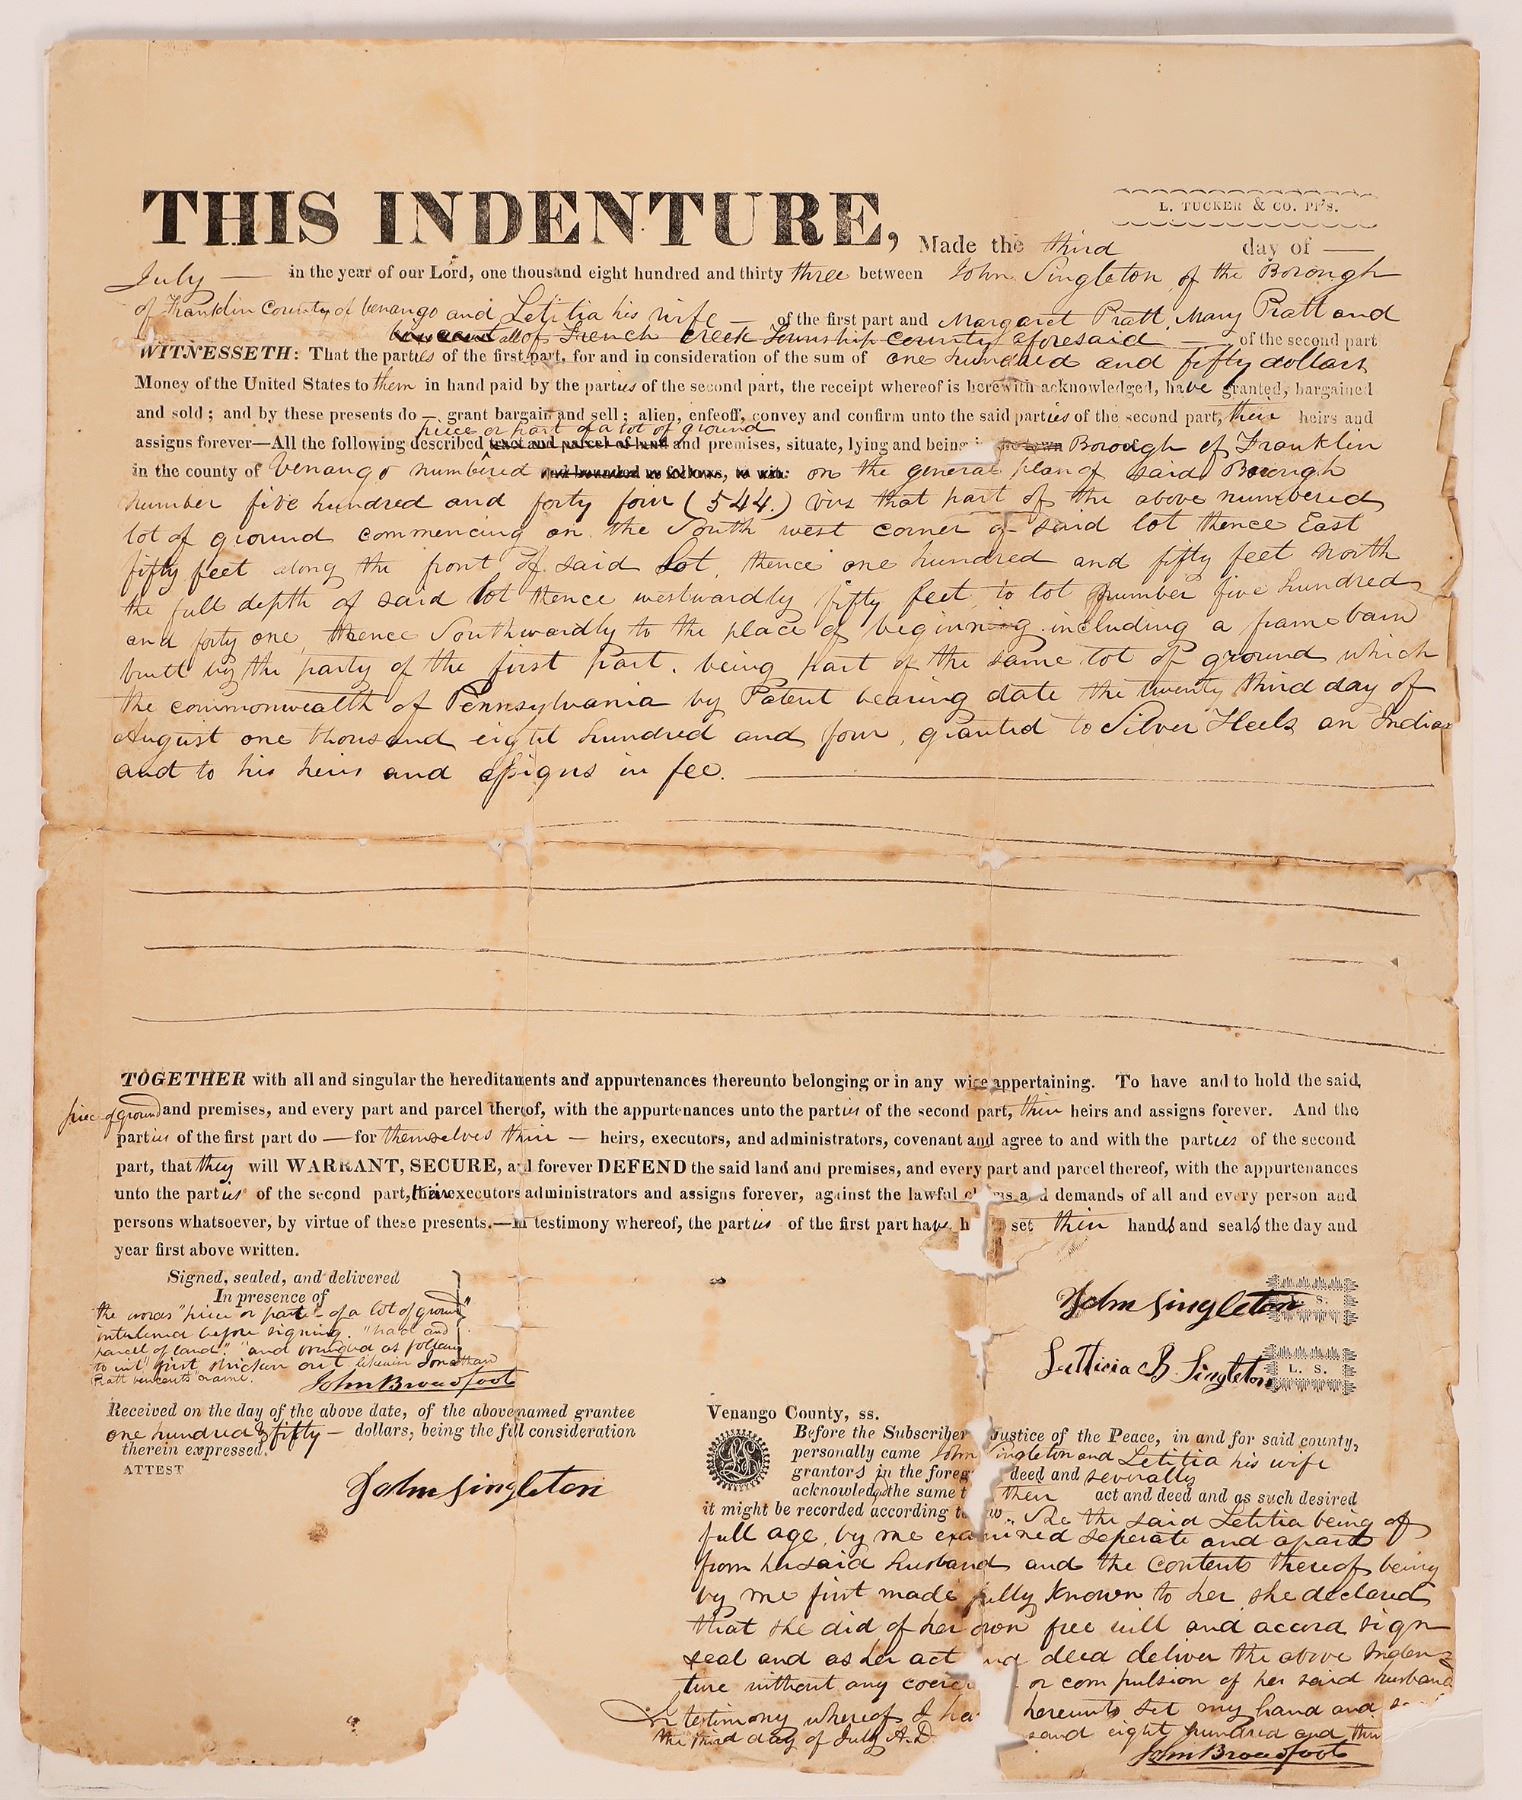 L. TUCKER & CO. PI'S.
THIS INDENTURE, Made the third day of
July in the year of our Lord, one thousand eight hundred and thirty three between John Singleton of the Borough
of Franklin County of Venango and Letitia his wife of the first part and Margaret Pratt, Mary Pratt and
all of French Creek Township county aforesaid of the second part
WITNESSETH: That the parties of the first part, for and in consideration of the sum of one hundred and fifty dollars
Money of the United States to them in hand paid by the parties of the second part, the receipt whereof is herewith acknowledged, have granted, bargained
and sold; and by these presents do grant bargain and sell; alien, enfeoff, convey and confirm unto the said parties of the second part, their heirs and
piece or part of a lot of ground
assigns forever—All the following described tract and parcel of land and premises, situate, lying and being Borough of Franklin
in the county of Venango numbered and bounded as follows, to wit: on the general plan of said Borough
number five hundred and forty four (544.) viz that part of the above numbered
lot of ground commencing on the South west corner of said lot thence East
fifty feet along the front of said Lot, thence one hundred and fifty feet North
the full depth of said lot thence westwardly fifty feet to lot number five hundred
and forty one, thence Southwardly to the place of beginning including a frame barn
built by the party of the first part. being part of the same lot of ground which
the commonwealth of Pennsylvania by Patent bearing date the twenty third day of
August one thousand eight hundred and four, granted to Silver Heels an Indian
and to his heirs and assigns in fee.
TOGETHER with all and singular the hereditaments and appurtenances thereunto belonging or in any wise appertaining. To have and to hold the said,
piece of ground and premises, and every part and parcel thereof, with the appurtenances unto the parties of the second part, their heirs and assigns forever. And the
parties of the first part do — for themselves their — heirs, executors, and administrators, covenant and agree to and with the parties of the second
part, that they will WARRANT, SECURE, and forever DEFEND the said land and premises, and every part and parcel thereof, with the appurtenances
unto the parties of the second part, their executors administrators and assigns forever, against the lawful claims and demands of all and every person and
persons whatsoever, by virtue of these presents.—In testimony whereof, the parties of the first part have set their hands and seals the day and
year first above written.
Signed, sealed, and delivered
In presence of
the words "piece or part" of a lot of ground"
interlined before signing. "tract and
parcel of land." "and bounded as follows
to wit" first stricken out likewise Jonathan
Pratt name.
John Broadfoot
John Singleton L. S.
Letticia B. Singleton L. S.
Received on the day of the above date, of the above named grantee
one hundred & fifty — dollars, being the full consideration
therein expressed.
ATTEST
John Singleton
Venango County, ss.
L S
Before the Subscriber Justice of the Peace, in and for said county,
personally came John Singleton and Letitia his wife
grantors in the foreg deed and severally
acknowledged the same t their act and deed and as such desired
it might be recorded according to law. She the said Letitia being of
full age, by me examined seperate and apart
from her said husband and the contents thereof being
by me first made fully known to her, she declared
that she did of her own free will and accord sign
seal and as her act and deed deliver the above Inden=
ture without any coerci or compulsion of her said husband
In testimony whereof I ha hereunto set my hand and
the third day of July A.D. sand eight hundred and thir
John Broadfoot